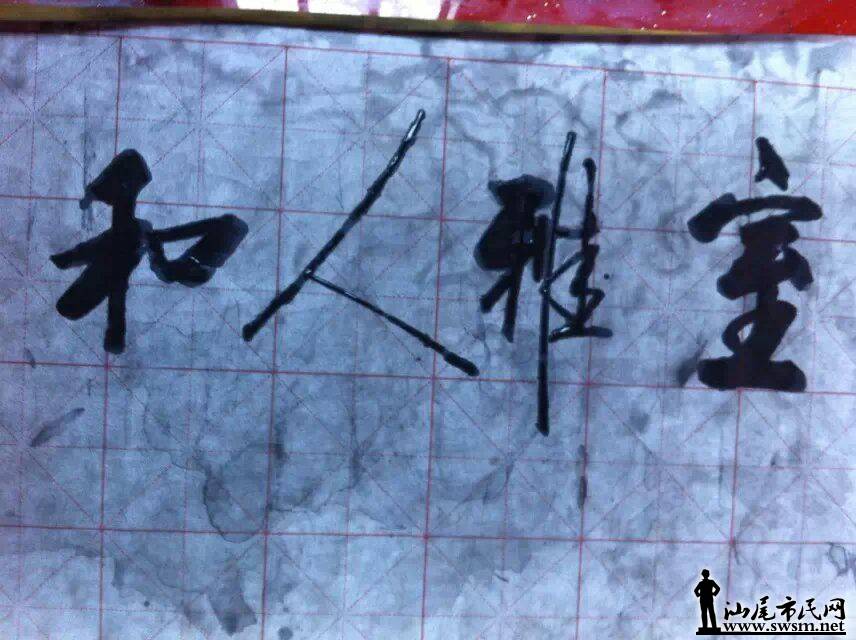 和人雅室
汕尾市民网
www.swsm.net